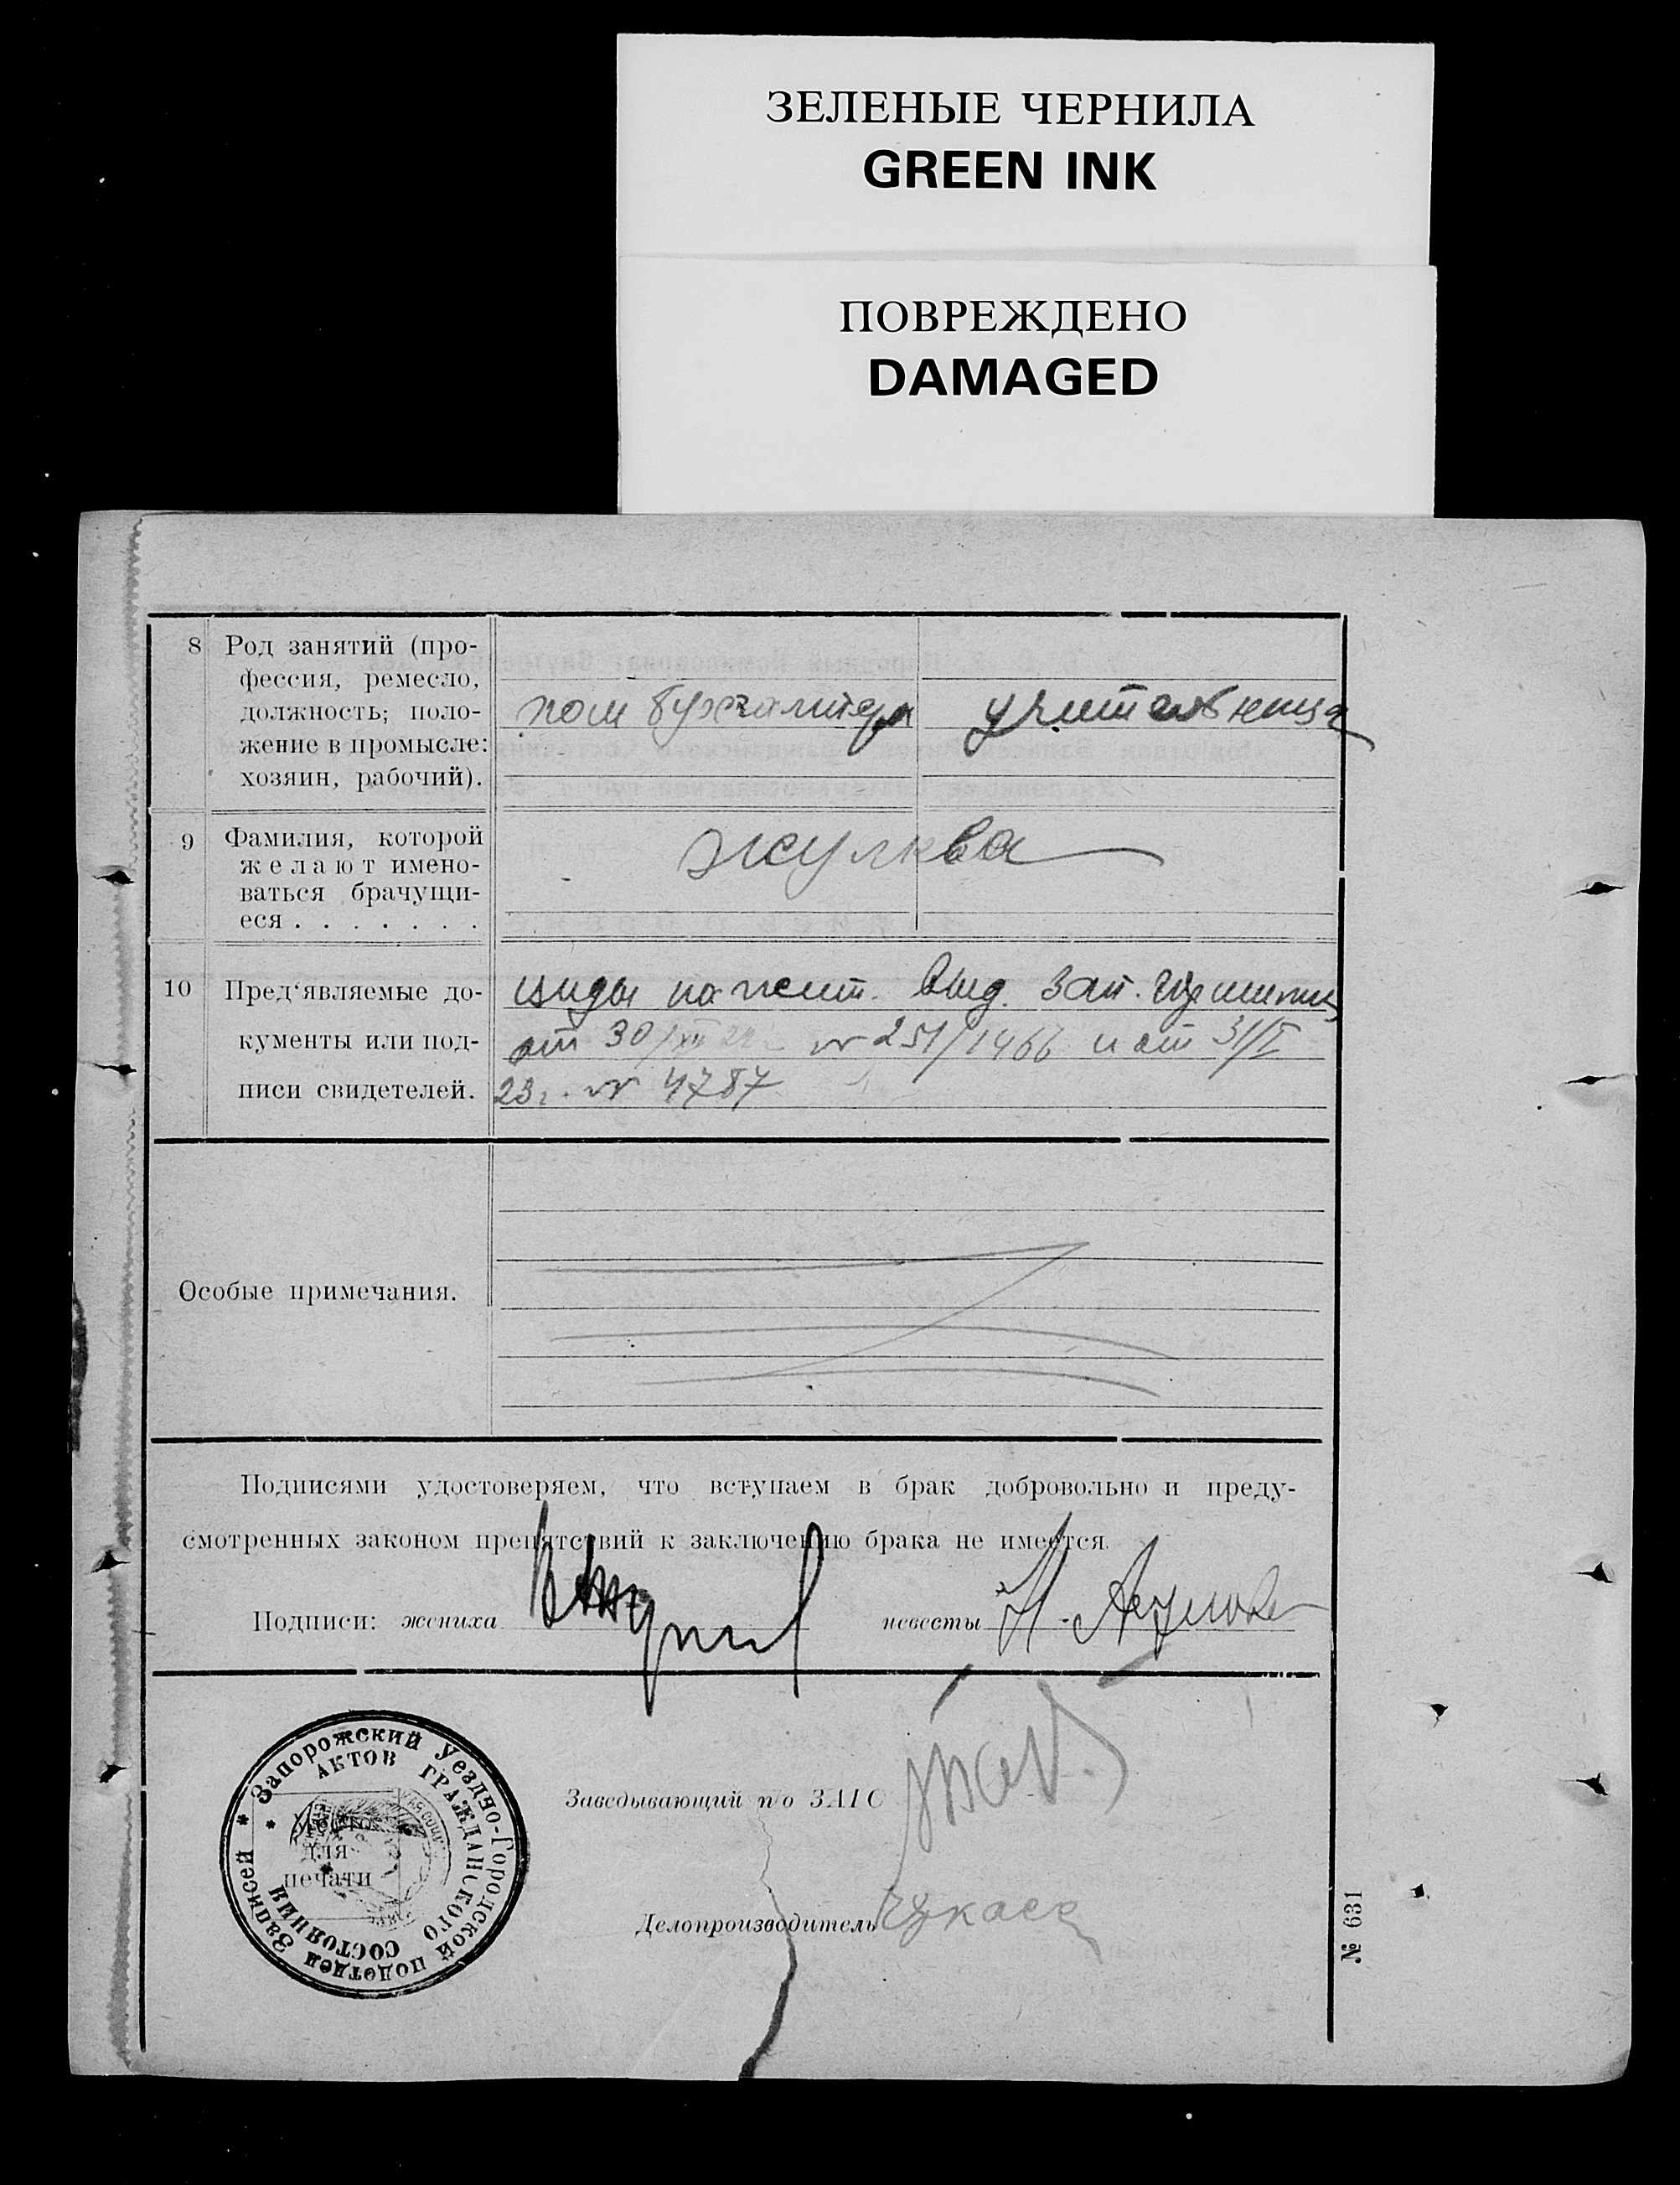 ЗЕЛЕНЫЕ ЧЕРНИЛА
GREEN INK
ПОВРЕЖДЕНО
DAMAGED
8 Род занятий (про-
фессия, ремесло,
должность; поло-
жение в промысле:
хозяин, рабочий).
пом бухгалтера учительница
9 Фамилия, которой
желают имено-
ваться брачущи-
еся . . . . . . .
10 Пред'являемые до-
кументы или под-
писи свидетелей.
виды на жит. выд. Зап.
от 30/XII 22 № 251/1466 и от 31/I
23г. № 4787
Особые примечания.
Подписями удостоверяем, что вступаем в брак добровольно и преду-
смотренных законом препятствий к заключению брака не имеется.
Подписи: жениха невесты Н.
Заведывающий п/о ЗАГС
Делопроизводитель
Запорожский Уездно-Городской подотдел Записей
АКТОВ ГРАЖДАНСКОГО СОСТОЯНИЯ
Место
для
печати
№ 631